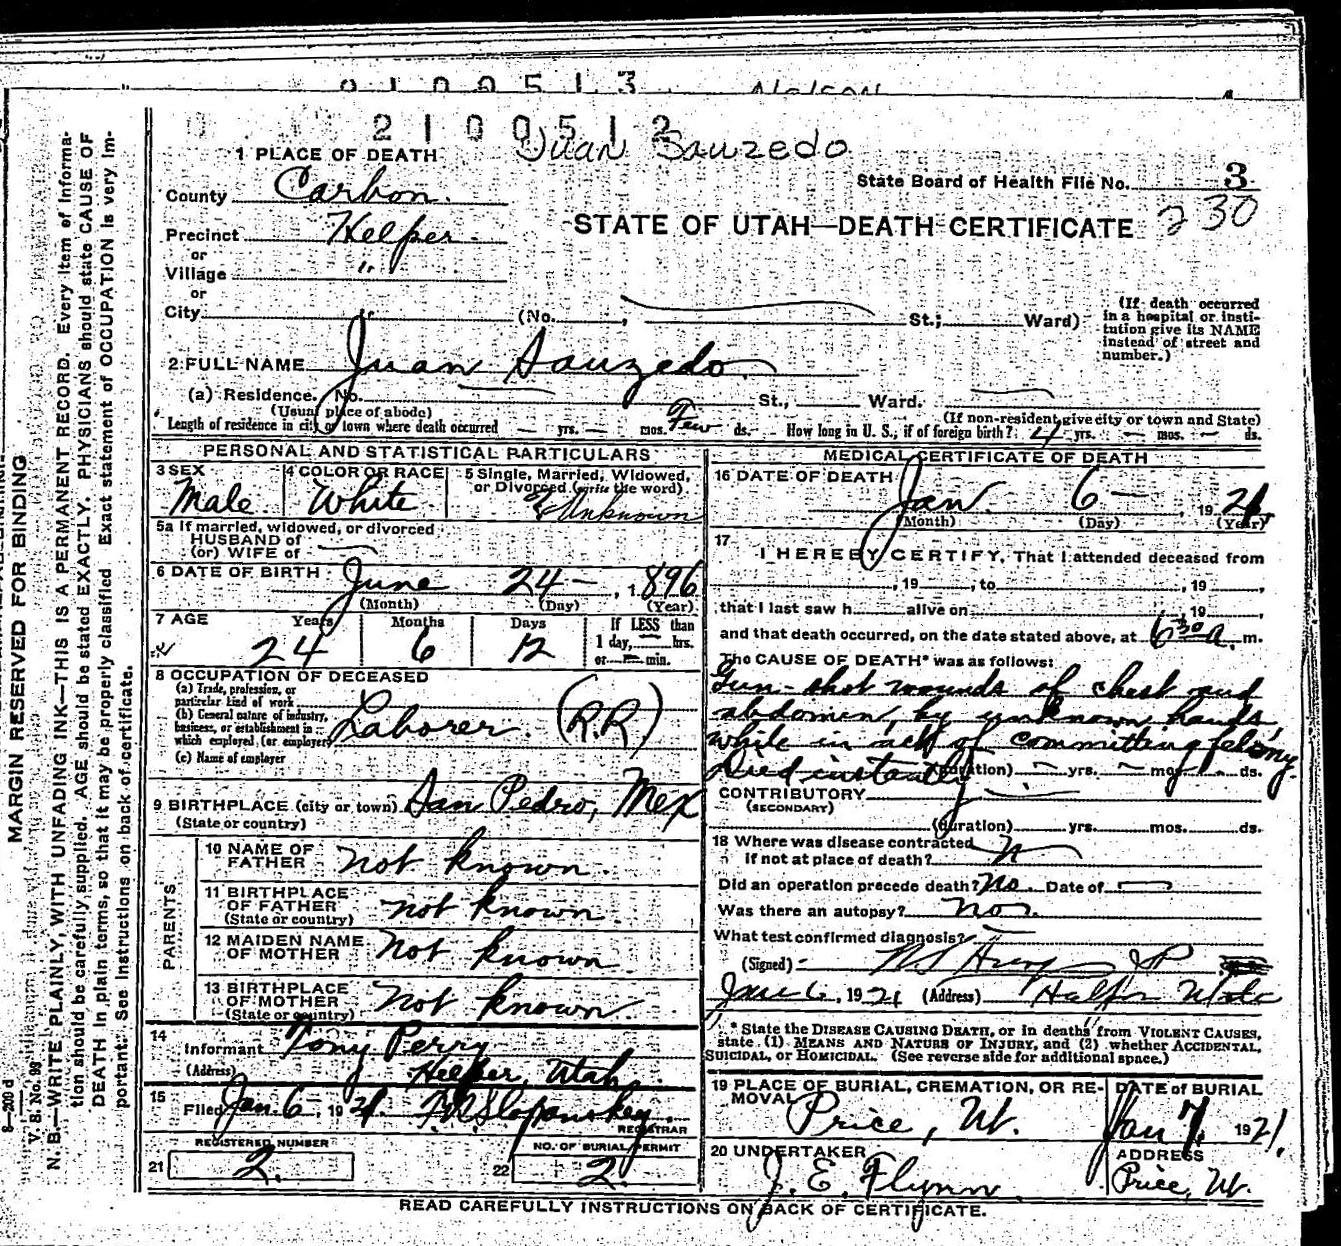 2100513 Nelson
2100512 Juan Sauzedo
1 PLACE OF DEATH
State Board of Health File No. 3
County Carbon
STATE OF UTAH—DEATH CERTIFICATE 230
Precinct Helper
or
Village "
or
City " (No. , St.; Ward)
(If death occurred in a hospital or institution give its NAME instead of street and number.)
2 FULL NAME Juan Sauzedo
(a) Residence. No. St., Ward.
(Usual place of abode) (If non-resident give city or town and State)
Length of residence in city or town where death occurred — yrs. — mos. Few ds. How long in U. S., if of foreign birth? 4 yrs. — mos. — ds.
PERSONAL AND STATISTICAL PARTICULARS
3 SEX Male
4 COLOR OR RACE White
5 Single, Married, Widowed, or Divorced (write the word) Unknown
5a If married, widowed, or divorced
HUSBAND of
(or) WIFE of —
6 DATE OF BIRTH June 24 — , 1896
(Month) (Day) (Year)
7 AGE Years Months Days If LESS than
24 6 12 1 day, — hrs.
or — min.
8 OCCUPATION OF DECEASED
(a) Trade, profession, or particular kind of work
(b) General nature of industry, business, or establishment in which employed (or employer)
Laborer. (R.R)
(c) Name of employer
9 BIRTHPLACE (city or town) San Pedro, Mex
(State or country)
PARENTS
10 NAME OF FATHER not known.
11 BIRTHPLACE OF FATHER not known
(State or country)
12 MAIDEN NAME OF MOTHER Not known
13 BIRTHPLACE OF MOTHER Not known
(State or country)
14 Informant Tony Perry
(Address) Helper, Utah
15 Filed Jan. 6, 1921.
REGISTRAR
REGISTERED NUMBER
21 2.
NO. OF BURIAL PERMIT
22 2.
MEDICAL CERTIFICATE OF DEATH
16 DATE OF DEATH Jan. 6 — , 1921
(Month) (Day) (Year)
17 I HEREBY CERTIFY, That I attended deceased from
, 19 , to , 19 ,
that I last saw h alive on , 19 ,
and that death occurred, on the date stated above, at 6 30 a. m.
The CAUSE OF DEATH* was as follows:
Gun-shot wounds of chest and
abdomen, by unknown hands,
while in act of committing felony.
Died instantly (duration) — yrs. — mos. — ds.
CONTRIBUTORY
(SECONDARY)
(duration) yrs. mos. ds.
18 Where was disease contracted
if not at place of death?
Did an operation precede death? No. Date of —
Was there an autopsy? no.
What test confirmed diagnosis? —
(Signed) J P
Jan 6, 1921 (Address) Helper Utah
* State the DISEASE CAUSING DEATH, or in deaths from VIOLENT CAUSES,
state (1) MEANS AND NATURE OF INJURY, and (2) whether ACCIDENTAL,
SUICIDAL, or HOMICIDAL. (See reverse side for additional space.)
19 PLACE OF BURIAL, CREMATION, OR REMOVAL Price, Ut.
DATE of BURIAL Jan 7, 1921.
20 UNDERTAKER J. E. Flynn
ADDRESS Price, Ut.
READ CAREFULLY INSTRUCTIONS ON BACK OF CERTIFICATE.
MARGIN RESERVED FOR BINDING
N. B.—WRITE PLAINLY, WITH UNFADING INK—THIS IS A PERMANENT RECORD. Every item of informa-
tion should be carefully supplied. AGE should be stated EXACTLY. PHYSICIANS should state CAUSE OF
DEATH in plain terms, so that it may be properly classified. Exact statement of OCCUPATION is very im-
portant. See instructions on back of certificate.
V. S. No. 99
8—209 d